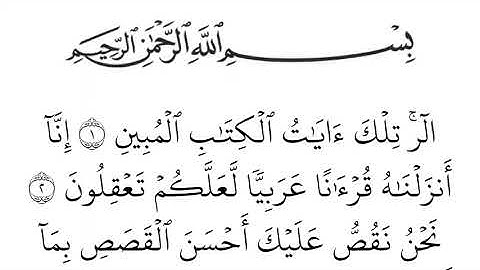 بِسْمِ ٱللَّهِ ٱلرَّحْمَٰنِ ٱلرَّحِيمِ
الٓرۚ تِلْكَ ءَايَٰتُ ٱلْكِتَٰبِ ٱلْمُبِينِ ١ إِنَّآ
أَنزَلْنَٰهُ قُرْءَٰنًا عَرَبِيًّا لَّعَلَّكُمْ تَعْقِلُونَ ٢
نَحْنُ نَقُصُّ عَلَيْكَ أَحْسَنَ ٱلْقَصَصِ بِمَآ